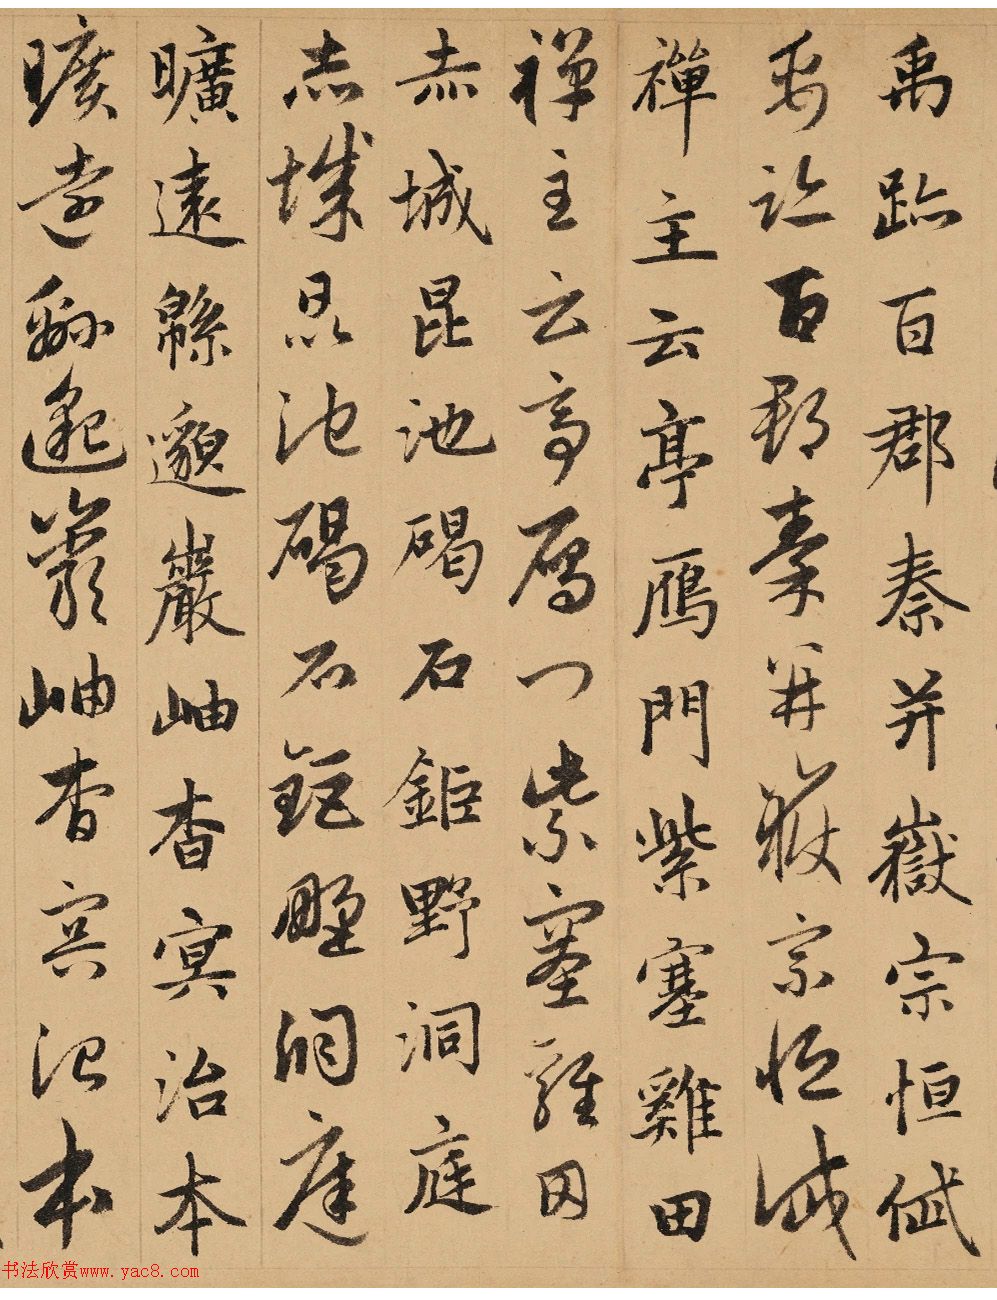 禹跡百郡秦并嶽宗恒岱
禹跡百郡秦并嶽宗恒岱
禪主云亭鴈門紫塞雞田
禪主云亭鴈門紫塞雞田
赤城昆池碣石鉅野洞庭
赤城昆池碣石鉅野洞庭
曠遠緜邈巖岫杳冥治本
曠遠緜邈巖岫杳冥治本
书法欣赏www.yac8.com